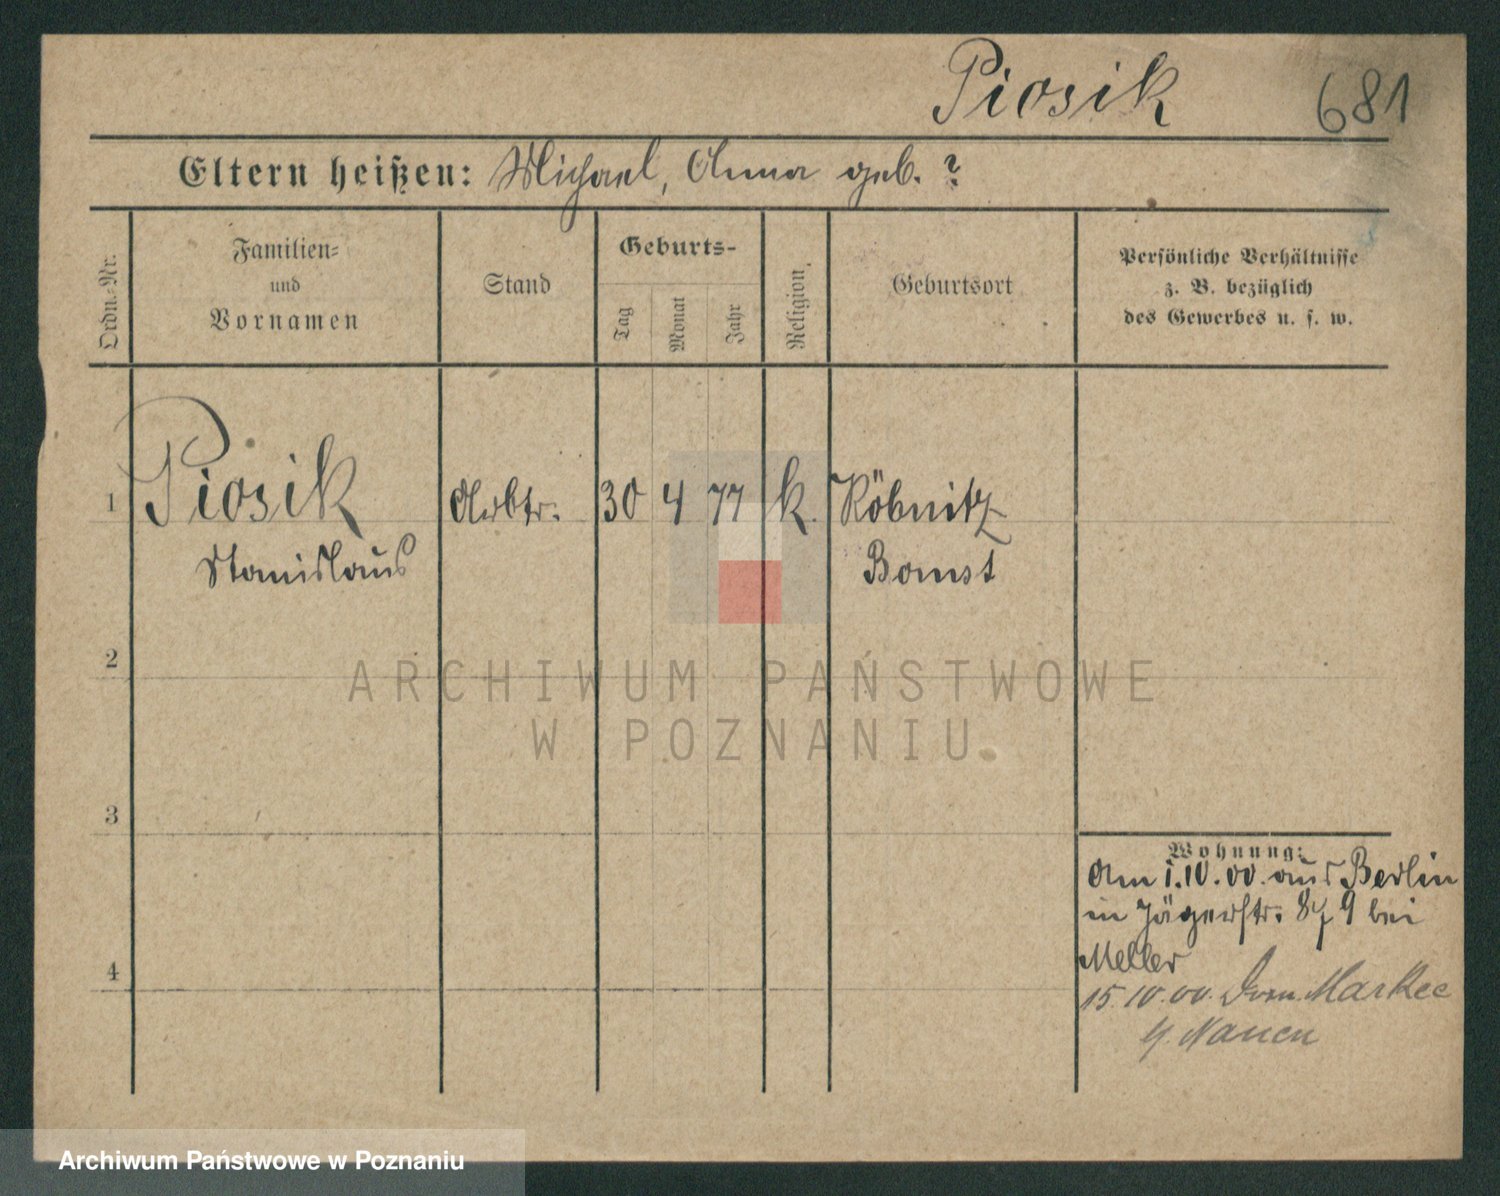 Piosik 681
Eltern heißen: Michael, Anna geb. ?
Ordn.-Nr.
Familien-
und
Vornamen
Stand
Geburts-
Tag
Monat
Jahr
Religion.
Geburtsort
Persönliche Verhältnisse
z. B. bezüglich
des Gewerbes u. s. w.
1 Piosik Arbtr. 30 4 77 k. Köbnitz
Stanislaus Bomst
2
ARCHIWUM PAŃSTWOWE
W POZNANIU
3
Wohnung:
Am 1.10.00. aus Berlin
in Jägerstr. 8/9 bei
Meller
4
15.10.00. Dom. Markee
b/ Nauen
Archiwum Państwowe w Poznaniu